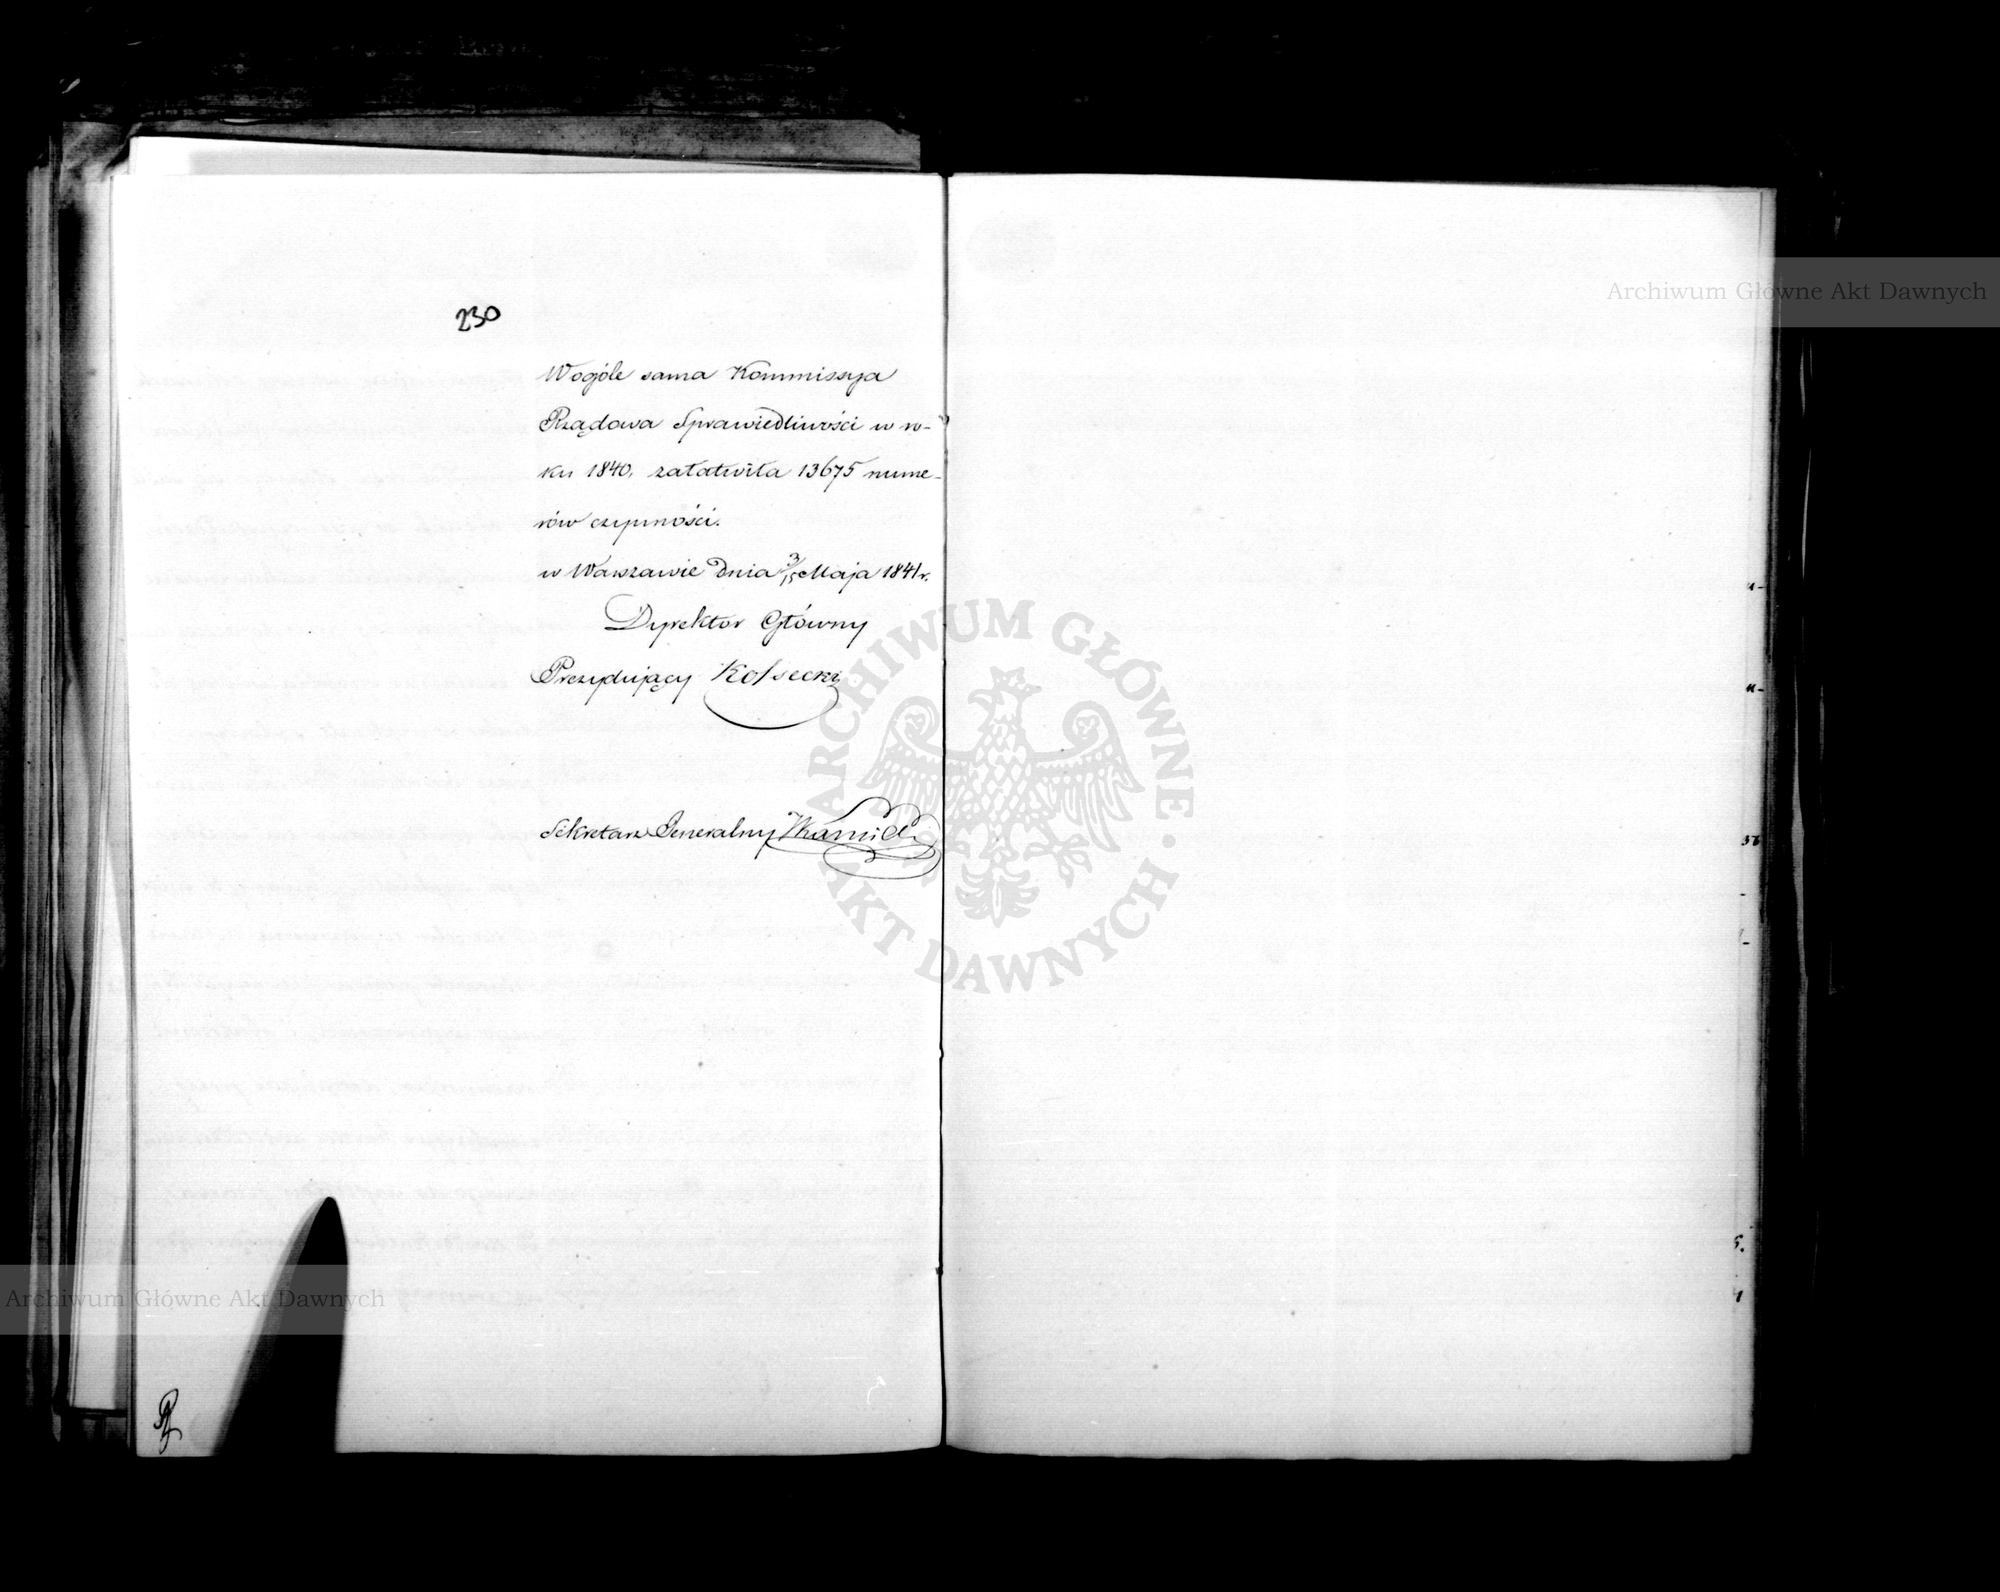 230
Wogóle sama Kommissya
Rządowa Sprawiedliwości w ro-
ku 1840. załatwiła 13675 nume-
rów czynności.
w Warszawie dnia 3/15 Maja 1841 r.
Dyrektor Główny
Prezydujący Kossecki
Sekretarz Jeneralny
Archiwum Główne Akt Dawnych
ARCHIWUM GŁÓWNE
AKT DAWNYCH
Archiwum Główne Akt Dawnych